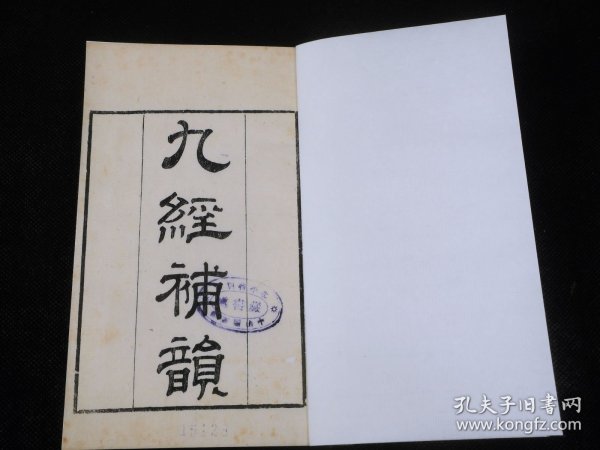 九經補韻
孔夫子旧书网
www.kongfz.com